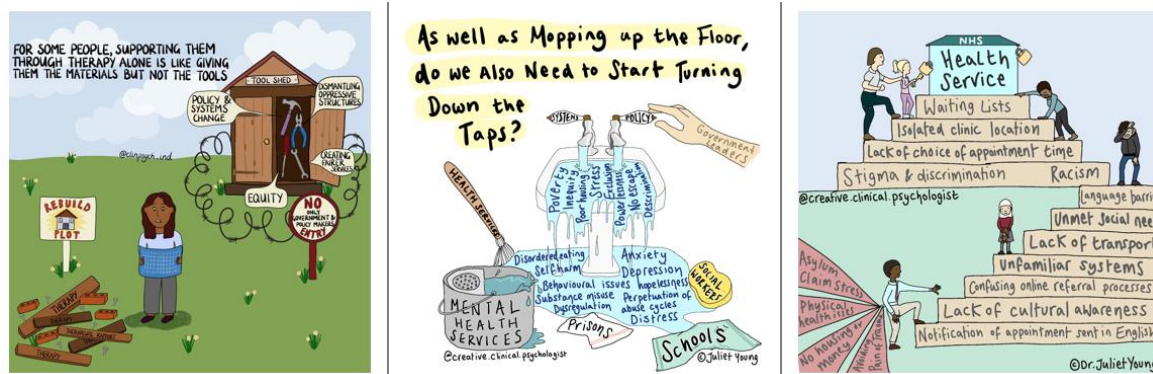 FOR SOME PEOPLE, SUPPORTING THEM
THROUGH THERAPY ALONE IS LIKE GIVING
THEM THE MATERIALS BUT NOT THE TOOLS
TOOL SHED
DISMANTLING
OPPRESSIVE
STRUCTURES
POLICY &
SYSTEMS
CHANGE
CREATING
FAIRER
SERVICES
EQUITY
@clinpsych_ind
REBUILD
PLOT
NO
ONLY
GOVERNMENT &
POLICY MAKERS
ENTRY
THERAPY
THERAPY
THERAPY
As well as Mopping up the Floor,
do we Also Need to Start Turning
Down the
Taps?
SYSTEMS
POLICY
Government
Leaders
HEALTH SERVICES
Poverty
Inequity
Poor housing
Stress
Exclusion
Powerlessness
No escape
Discrimination
Disordered eating
Self harm
Behavioural issues
Substance misuse
Dysregulation
Anxiety
Depression
hopelessness
Perpetuation of
abuse cycles
Distress
SOCIAL
WORKERS
MENTAL
HEALTH
SERVICES
Prisons
Schools
@creative.clinical.psychologist
©Juliet Young
NHS
Health
Service
Waiting Lists
Isolated clinic location
Lack of choice of appointment time
Stigma & discrimination
Racism
@creative.clinical.psychologist
Language barri
Unmet social nee
Lack of transport
Unfamiliar systems
Confusing online referral processes
Lack of cultural awareness
Notification of appointment sent in English
Asylum
Claim stress
Physical
health isses
No housing or
money
Avoiding
Pain of
©Dr.Juliet Young